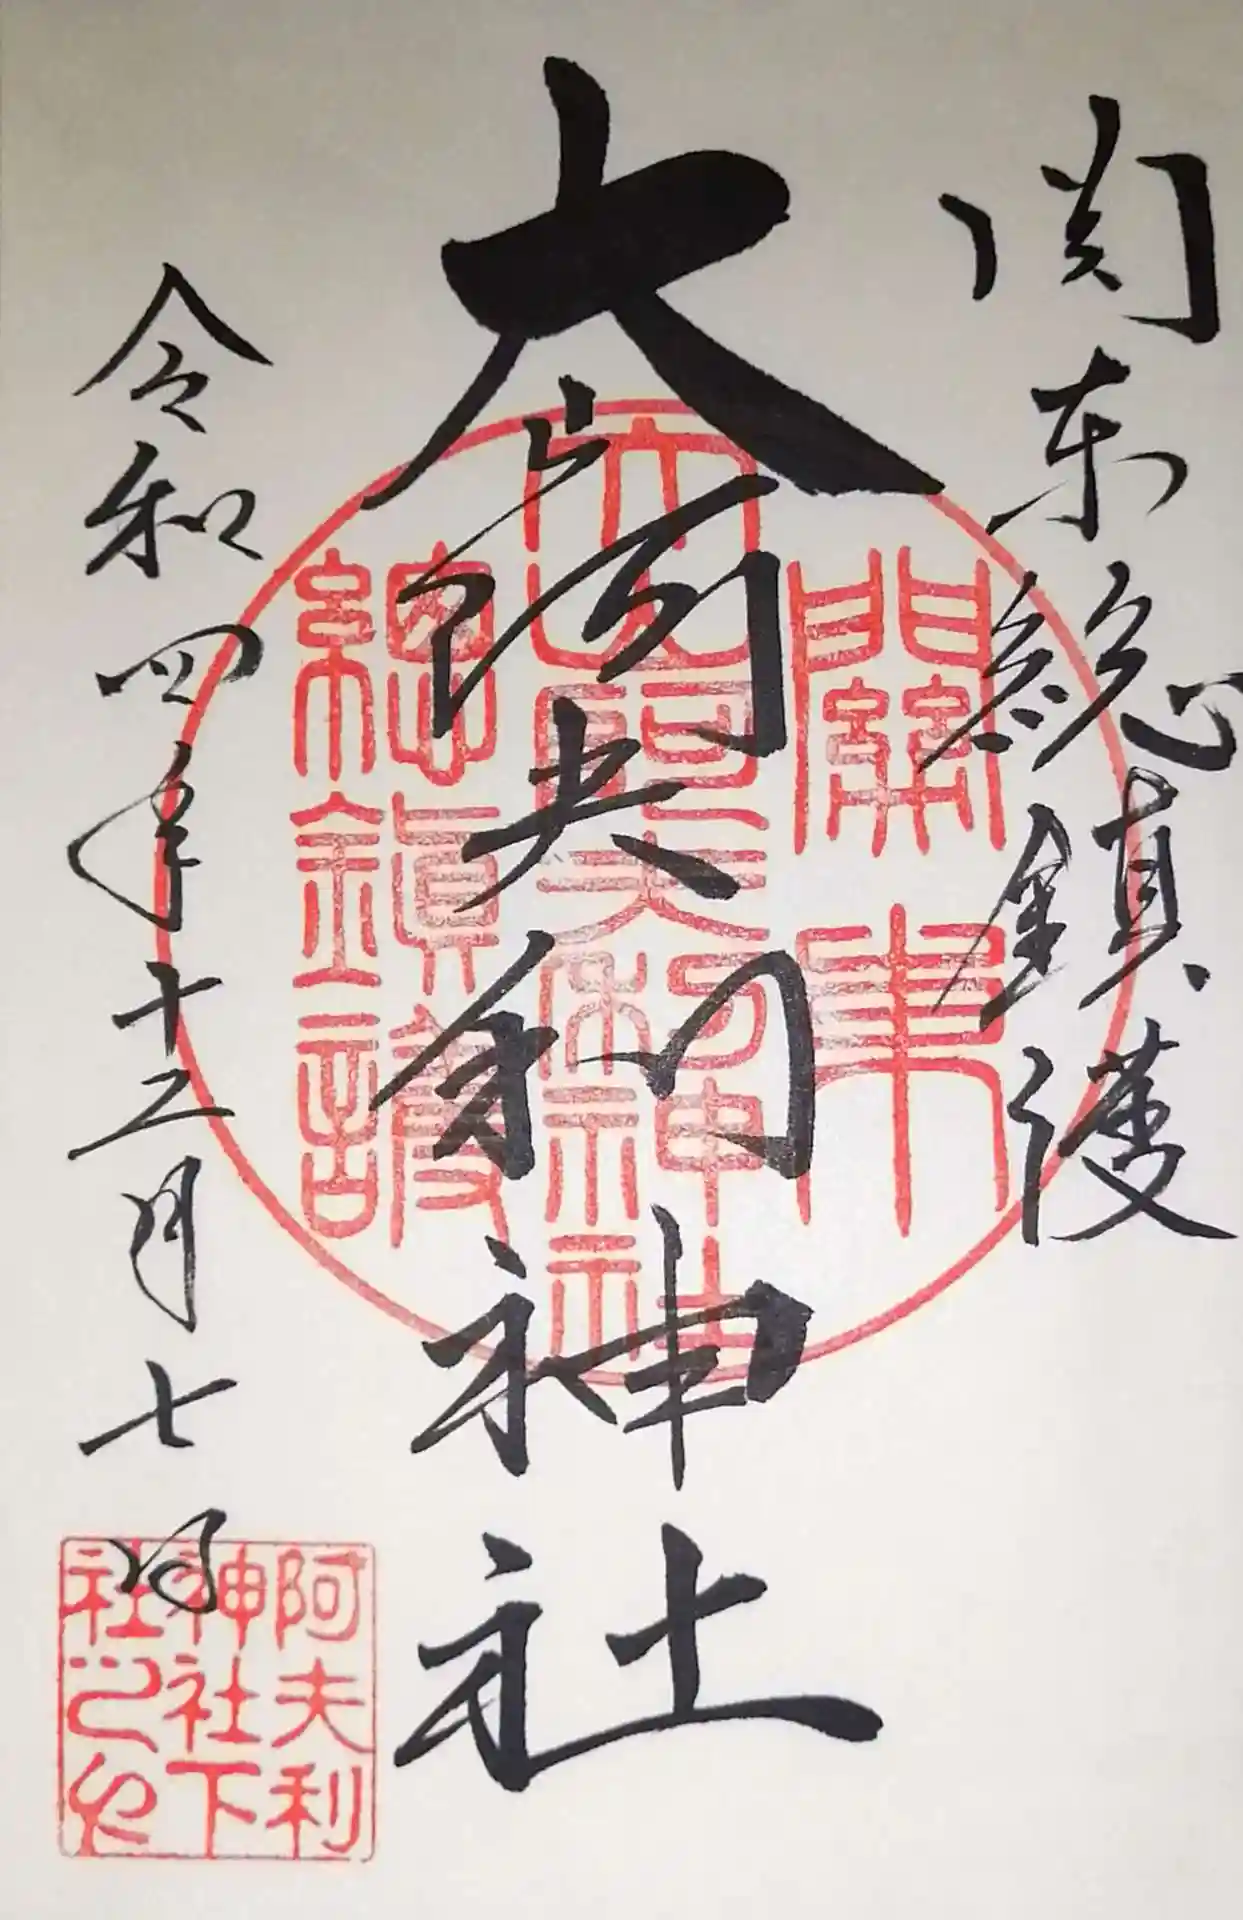 関東総鎮護
大山阿夫利神社
令和四年十二月七日
關東
大山阿夫利神社
總鎮護
阿夫利
神社下
社之印